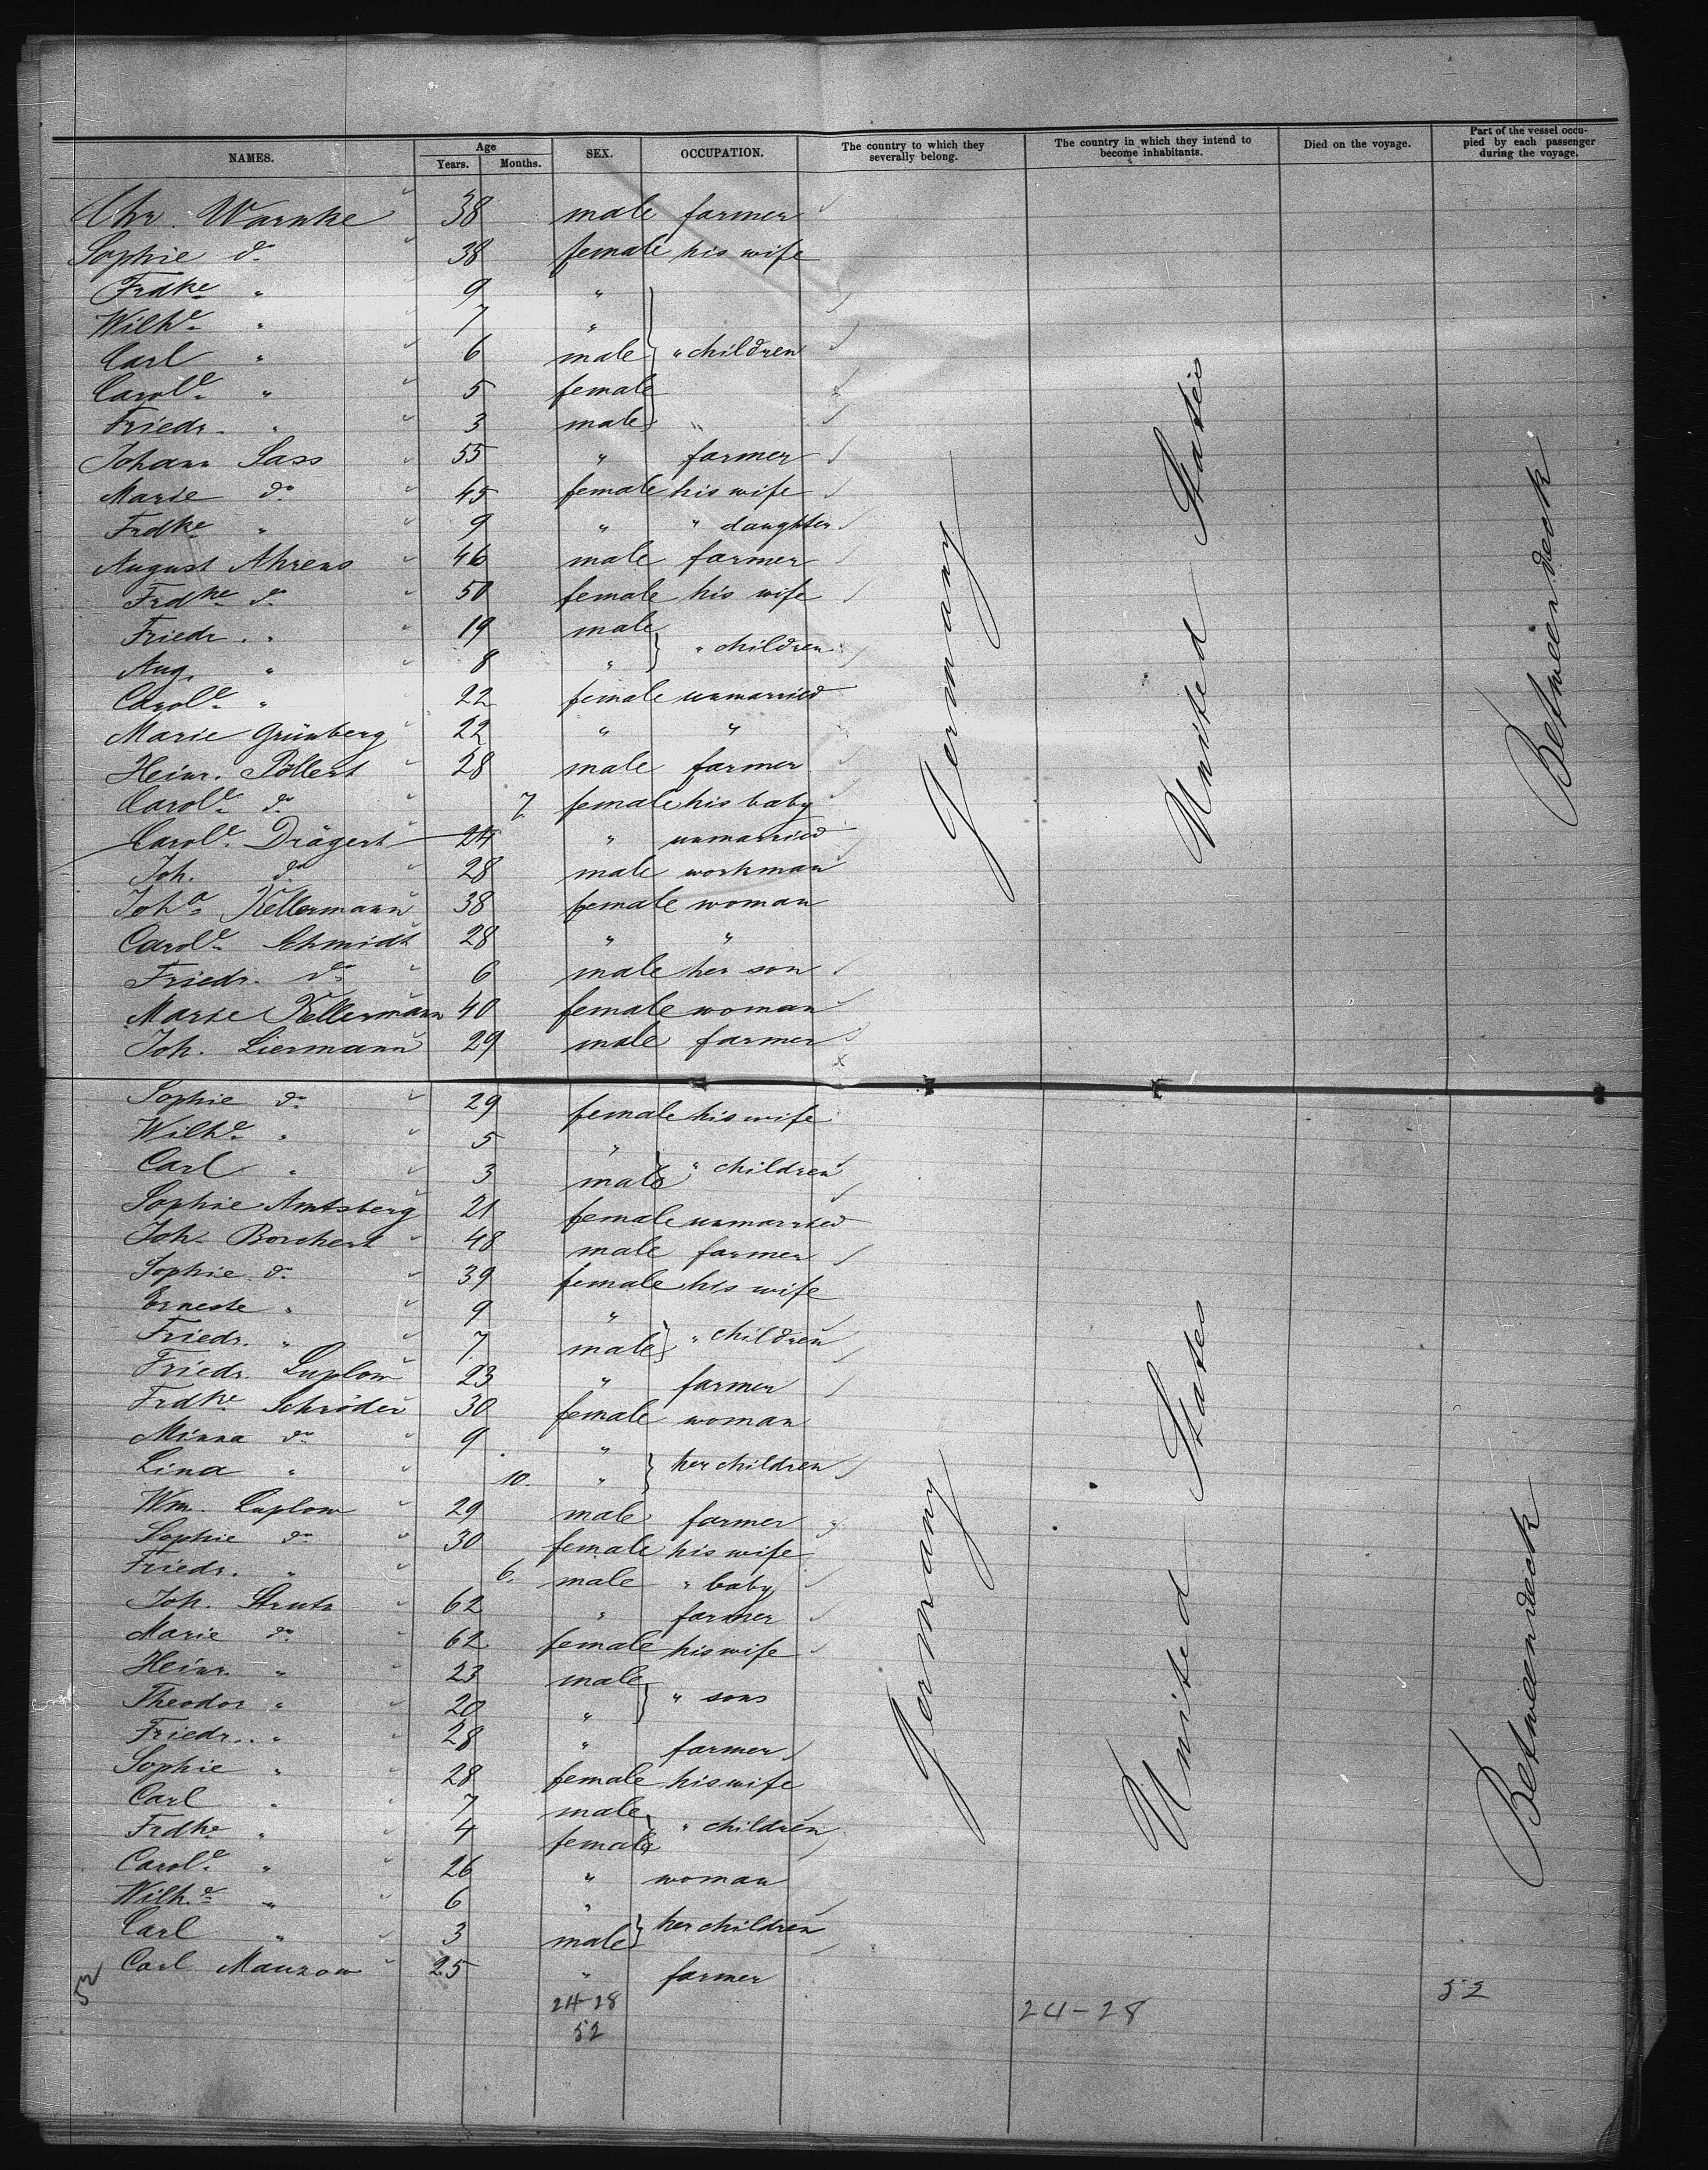 NAMES. Age Years. Months. SEX. OCCUPATION. The country to which they severally belong. The country in which they intend to become inhabitants. Died on the voyage. Part of the vessel occupied by each passenger during the voyage.
Chr. Warnke 38 male farmer
Sophie do 38 female his wife
Frdke " 9 "
Wilhe " 7 "
Carl " 6 male " children
Carole " 5 female
Friedr. " 3 male "
Johann Sass 55 " farmer
Marie do 45 female his wife
Frdke " 9 " " daughter
August Ahrens 46 male farmer
Frdke do 50 female his wife
Friedr. " 19 male
Aug. " 8 " " children
Carole " 22 female unmarried
Marie Grünberg 22 " "
Heinr. Pöllert 28 male farmer
Carole do 7 female his baby
Carole Drägert 24 " unmarried
Joh. do 28 male workman
Joha Kellermann 38 female woman
Carole Schmidt 28 " "
Friedr. do 6 male her son
Marie Kellermann 40 female woman
Joh. Liermann 29 male farmer
Germany
United States
Betweendeck
Sophie do 29 female his wife
Wilhe " 5 "
Carl " 3 male " children
Sophie Amtsberg 21 female unmarried
Joh. Borchert 48 male farmer
Sophie do 39 female his wife
Erneste " 9 "
Friedr. " 7 male " children
Friedr. Luplow 23 " farmer
Frdke Schröder 30 female woman
Minna do 9 "
Lina " 10 " her children
Wm. Luplow 29 male farmer
Sophie do 30 female his wife
Friedr. " 6. male " baby
Joh. Strutz 62 " farmer
Marie do 62 female his wife
Heinr. " 23 male
Theodor " 20 " " sons
Friedr. " 28 " farmer
Sophie " 28 female his wife
Carl " 7 male
Frdke " 4 female " children
Carole " 26 " woman
Wilhe " 6 "
Carl " 3 male her children
Carl Manzow 25 " farmer
Germany
United States
Betweendeck
52
24-28
52
24-28
52